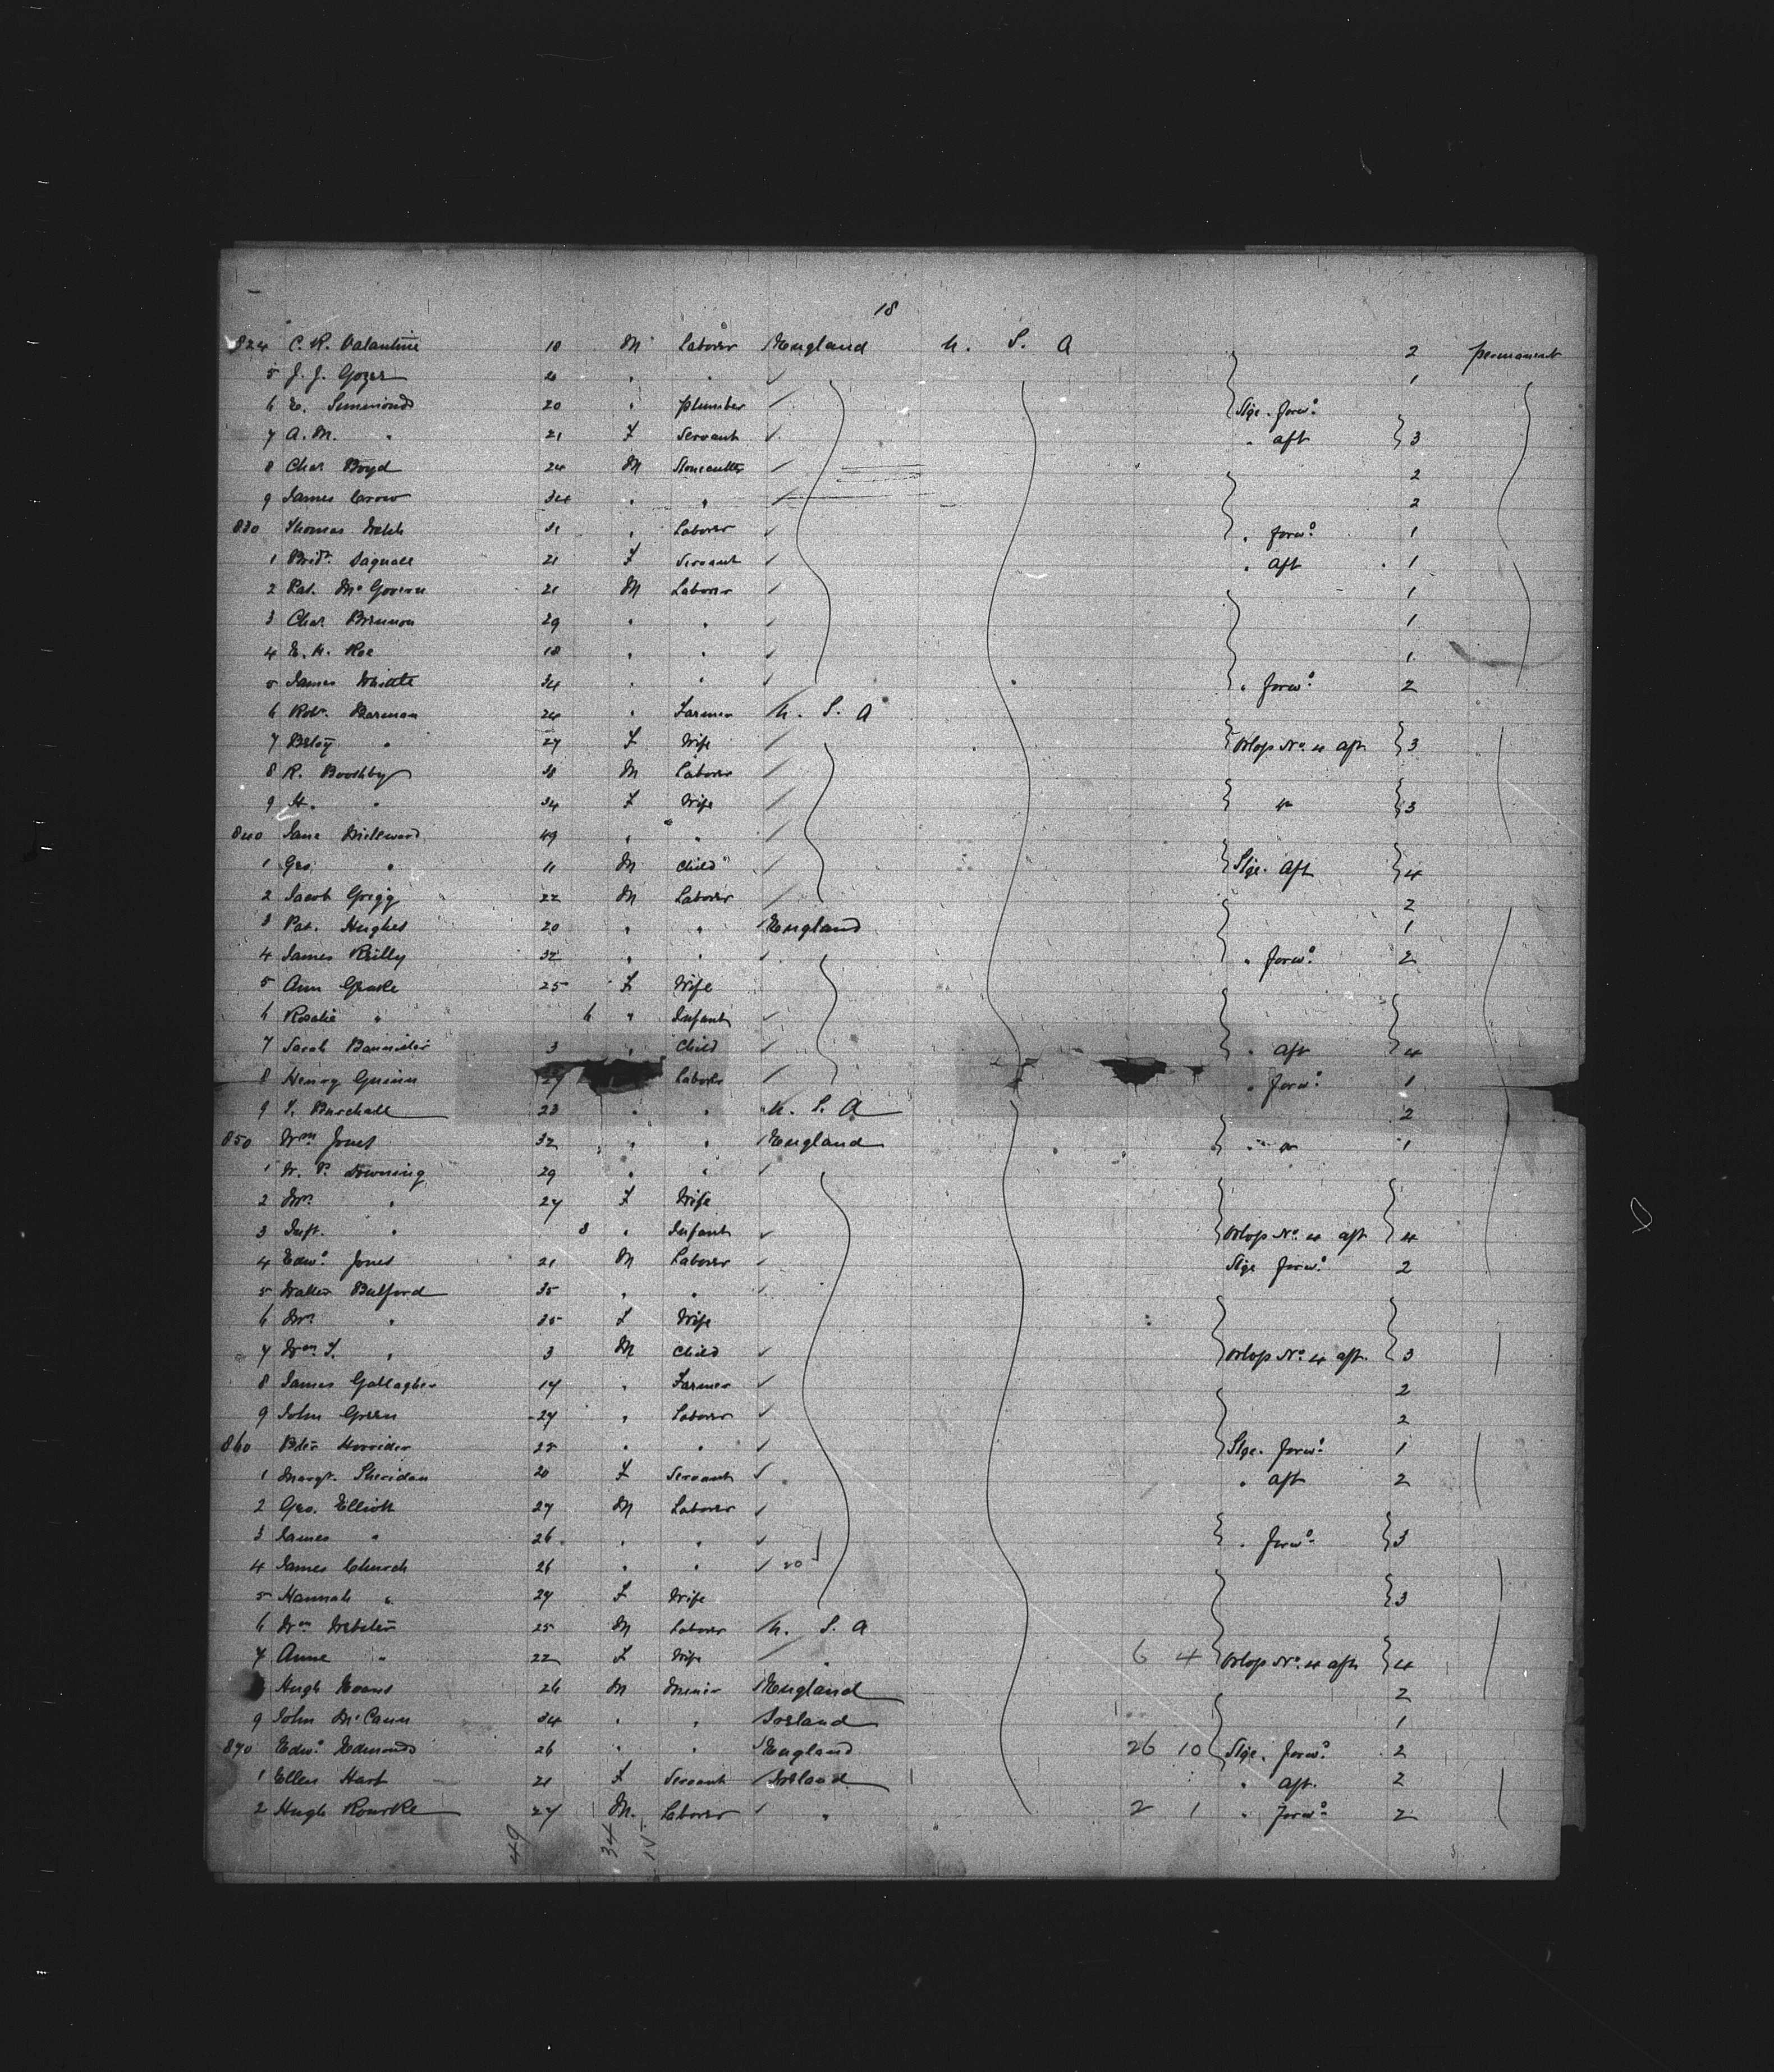 18
824 C. R. Valantine 10 M Laborer England U. S. A 2 permanent
5 J. J. Gozer " " 1
6 E. Simmonds 20 " Plumber Stge. forwd.
7 A. M. " 21 F Servant " aft 3
8 Chas Boyd 24 M Stonecutter 2
9 James Crow 34 " " 2
830 Thomas Welsh 31 " Laborer " forwd. 1
1 Bridt. 21 F Servant " aft 1
2 Pat. McGovern 21 M Laborer 1
3 Chas. Brennon 29 " " 1
4 E. H. Roe 18 " " 1
5 James Whittle 34 " " " forwd. 2
6 Robt. Barman 24 " Farmer U. S. A
7 Betsy " 27 F Wife Orlop No. 4 aft 3
8 R. Boothby 38 M Laborer
9 H. " 34 F Wife " 3
840 Jane 49 " "
1 Geo. " 11 M Child Stge. Aft 4
2 Jacob Grigg 22 M Laborer 2
3 Pat. Hughes 20 " " England 1
4 James Reilly 32 " " " forwd. 2
5 Ann 25 F Wife
6 Rosalie " 6 " Infant
7 Sarah Bannister 3 " Child " Aft 4
8 Henry Guinn 27 Laborer " forwd. 1
9 T. Burchall 23 " " U. S. A 2
850 Wm. Jones 32 " " England " " 1
1 W. P. Downing 29 " "
2 Mrs. " 27 F Wife
3 Inft. " 8 " Infant Orlop No. 4 aft 4
4 Edwd. Jones 21 M Laborer Stge forwd. 2
5 Walter Bulford 35 " "
6 Mrs. " 35 F Wife
7 Wm. T. " 3 M Child Orlop No. 4 aft. 3
8 James Gallagher 17 " Farmer 2
9 John Green 27 " Laborer 2
860 Peter 25 " " Stge. forwd. 1
1 Margt. Sheridan 20 F Servant " aft 2
2 Geo. Elliott 27 M Laborer
3 James " 26 " " " forwd. 3
4 James Church 26 " " 20
5 Hannah " 27 F Wife 3
6 Wm. Webster 25 M Laborer U. S. A
7 Anne " 22 F Wife " 6 4 Orlop No. 4 aft 4
Hugh Evans 26 M Miner England 2
9 John McCann 34 " " Ireland 1
870 Edwd. Edmonds 26 " " England 26 10 Stge. forwd. 2
1 Ellen Hart 21 F Servant Ireland " aft. 2
2 Hugh Rourke 27 M. Laborer " 2 1 " Forwd. 2
49 34 15